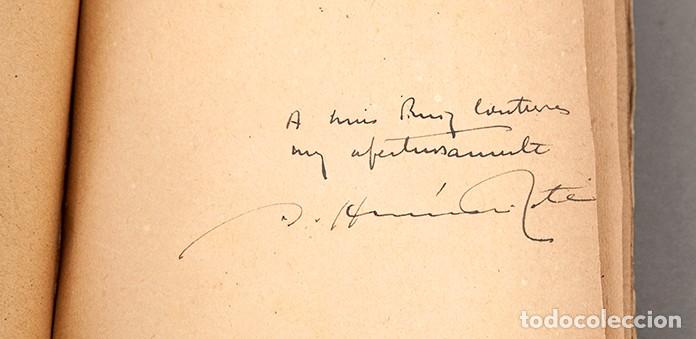 A Luis Ruiz Contreras
muy afectuosamente
A. Hernández Catá
todocoleccion